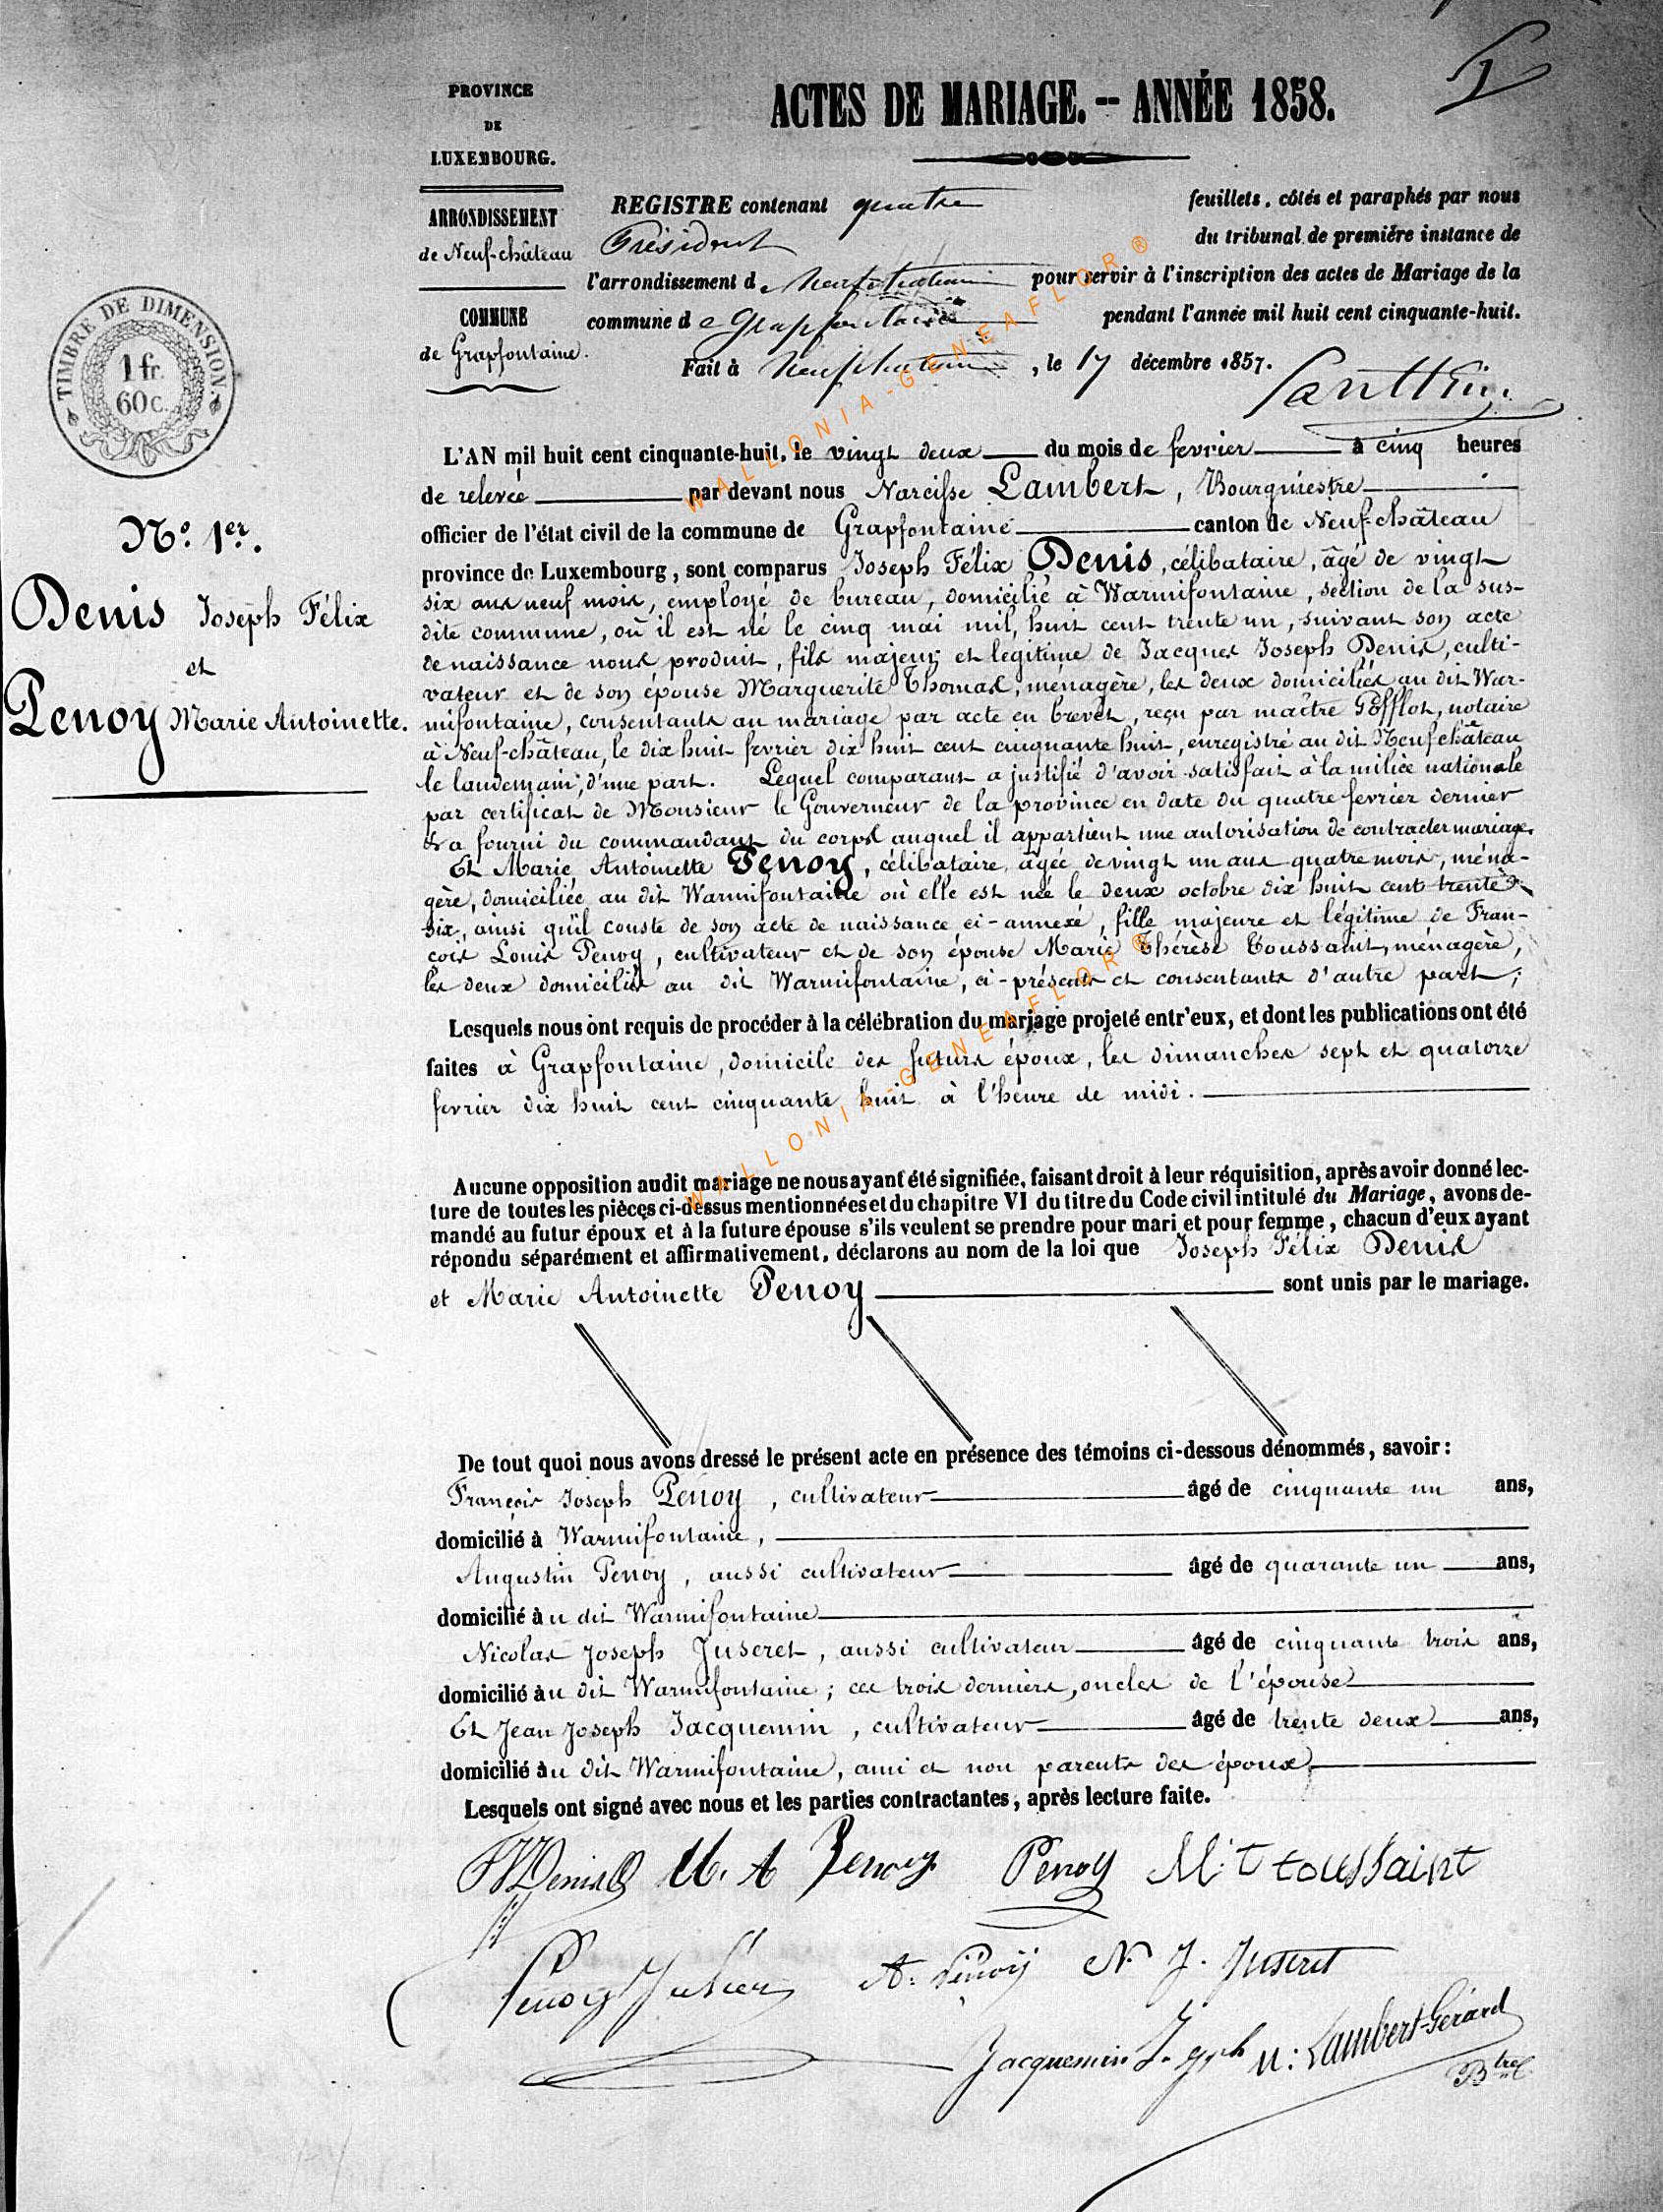 1
PROVINCE
DE
LUXEMBOURG.
ACTES DE MARIAGE. -- ANNÉE 1858.
ARRONDISSEMENT
de Neuf-château
COMMUNE
de Grapfontaine.
REGISTRE contenant quatre feuillets, côtés et paraphés par nous
Président du tribunal de première instance de
l'arrondissement de Neufchateau pour servir à l'inscription des actes de Mariage de la
commune de Grapfontaine pendant l'année mil huit cent cinquante-huit.
Fait à Neufchateau, le 17 décembre 1857.
TIMBRE DE DIMENSION.
1 fr.
60 c.
N.o 1er.
Denis Joseph Félix
et
Penoy Marie Antoinette.
L'AN mil huit cent cinquante-huit, le vingt deux du mois de fevrier à cinq heures
de relevée par devant nous Narcisse Lambert, Bourgmestre
officier de l'état civil de la commune de Grapfontaine canton de Neuf-château
province de Luxembourg, sont comparus Joseph Félix Denis, célibataire, âgé de vingt
six ans neuf mois, employé de bureau, domicilié à Warmifontaine, section de la sus-
dite commune, où il est né le cinq mai mil, huit cent trente un, suivant son acte
de naissance nous produit, fils majeur et legitime de Jacques Joseph Denis, culti-
vateur et de son épouse Marguerite Thomas, ménagère, les deux domiciliés au dit War-
mifontaine, consentants au mariage par acte en brevet, reçu par maître Pofflot, notaire
à Neuf-château, le dix huit fevrier dix huit cent cinquante huit, enregistré au dit Neufchâteau
le landemain; d'une part. Lequel comparant a justifié d'avoir satisfait à la milice nationale
par certificat de Monsieur le Gouverneur de la province en date du quatre fevrier dernier
et a fourni du commandant du corps auquel il appartient une autorisation de contracter mariage.
Et Marie Antoinette Penoy, célibataire, âgée de vingt un ans quatre mois, ména-
gère, domiciliée au dit Warmifontaine où elle est née le deux octobre dix huit cent trente
six, ainsi qu'il conste de son acte de naissance ci-annexé, fille majeure et légitime de Fran-
çois Louis Penoy, cultivateur et de son épouse Marie Thérèse Toussaint, ménagère,
les deux domiciliés au dit Warmifontaine, ci-présents et consentants d'autre part;
Lesquels nous ont requis de procéder à la célébration du mariage projeté entr'eux, et dont les publications ont été
faites à Grapfontaine, domicile des futurs époux, les dimanches sept et quatorze
fevrier dix huit cent cinquante huit à l'heure de midi.
Aucune opposition audit mariage ne nous ayant été signifiée, faisant droit à leur réquisition, après avoir donné lec-
ture de toutes les pièces ci-dessus mentionnées et du chapitre VI du titre du Code civil intitulé du Mariage, avons de-
mandé au futur époux et à la future épouse s'ils veulent se prendre pour mari et pour femme, chacun d'eux ayant
répondu séparément et affirmativement, déclarons au nom de la loi que Joseph Félix Denis
et Marie Antoinette Penoy sont unis par le mariage.
De tout quoi nous avons dressé le présent acte en présence des témoins ci-dessous dénommés, savoir:
François Joseph Penoy, cultivateur âgé de cinquante un ans,
domicilié à Warmifontaine,
Augustin Penoy, aussi cultivateur âgé de quarante un ans,
domicilié au dit Warmifontaine
Nicolas Joseph Juseret, aussi cultivateur âgé de cinquante trois ans,
domicilié au dit Warmifontaine; ces trois derniers, oncles de l'épouse
Et Jean Joseph Jacquemin, cultivateur âgé de trente deux ans,
domicilié au dit Warmifontaine, ami et non parents des époux
Lesquels ont signé avec nous et les parties contractantes, après lecture faite.
Denis M. A Penoy Penoy M. t toussaint
Penoy A. Penoy N. J. Juseret
Jacquemin J. Jph N: Lambert-Gérard
Btre
WALLONIA-GENEAFLOR®
WALLONIA-GENEAFLOR®